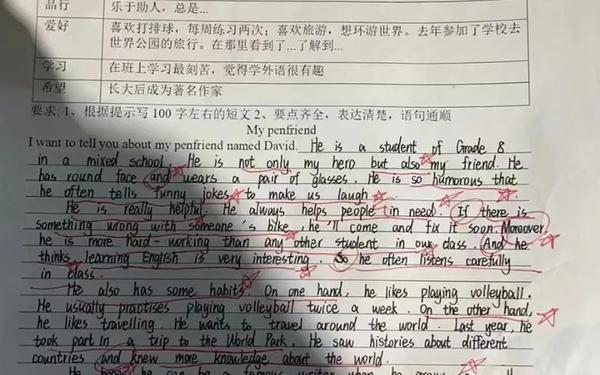 品行 乐于助人，总是...
爱好 喜欢打排球，每周练习两次；喜欢旅游，想环游世界。去年参加了学校去
世界公园的旅行。在那里看到了...了解到...
学习 在班上学习最刻苦，觉得学外语很有趣
希望 长大后成为著名作家
要求: 1、根据提示写 100 字左右的短文 2、要点齐全，表达清楚，语句通顺
My penfriend
I want to tell you about my penfriend named David. He is a student of Grade 8
in a mixed school. He is not only my hero but also my friend. He
has round face and wears a pair of glasses. He is so humorous that
he often tells funny jokes to make us laugh.
He is really helpful. He always helps people in need. If there is
something wrong with someone's bike, he'll come and fix it soon. Moreover,
he is more hard-working than any other student in our class. And he
thinks learning English is very interesting. So he often listens carefully
in class.
He also has some habits. On one hand, he likes playing volleyball.
He usually practises playing volleyball twice a week. On the other hand,
he likes travelling. He wants to travel around the world. Last year, he
took part in a trip to the World Park. He saw histories about different
countries and knew more knowledge about the world.
He hopes he can be a famous writer when he